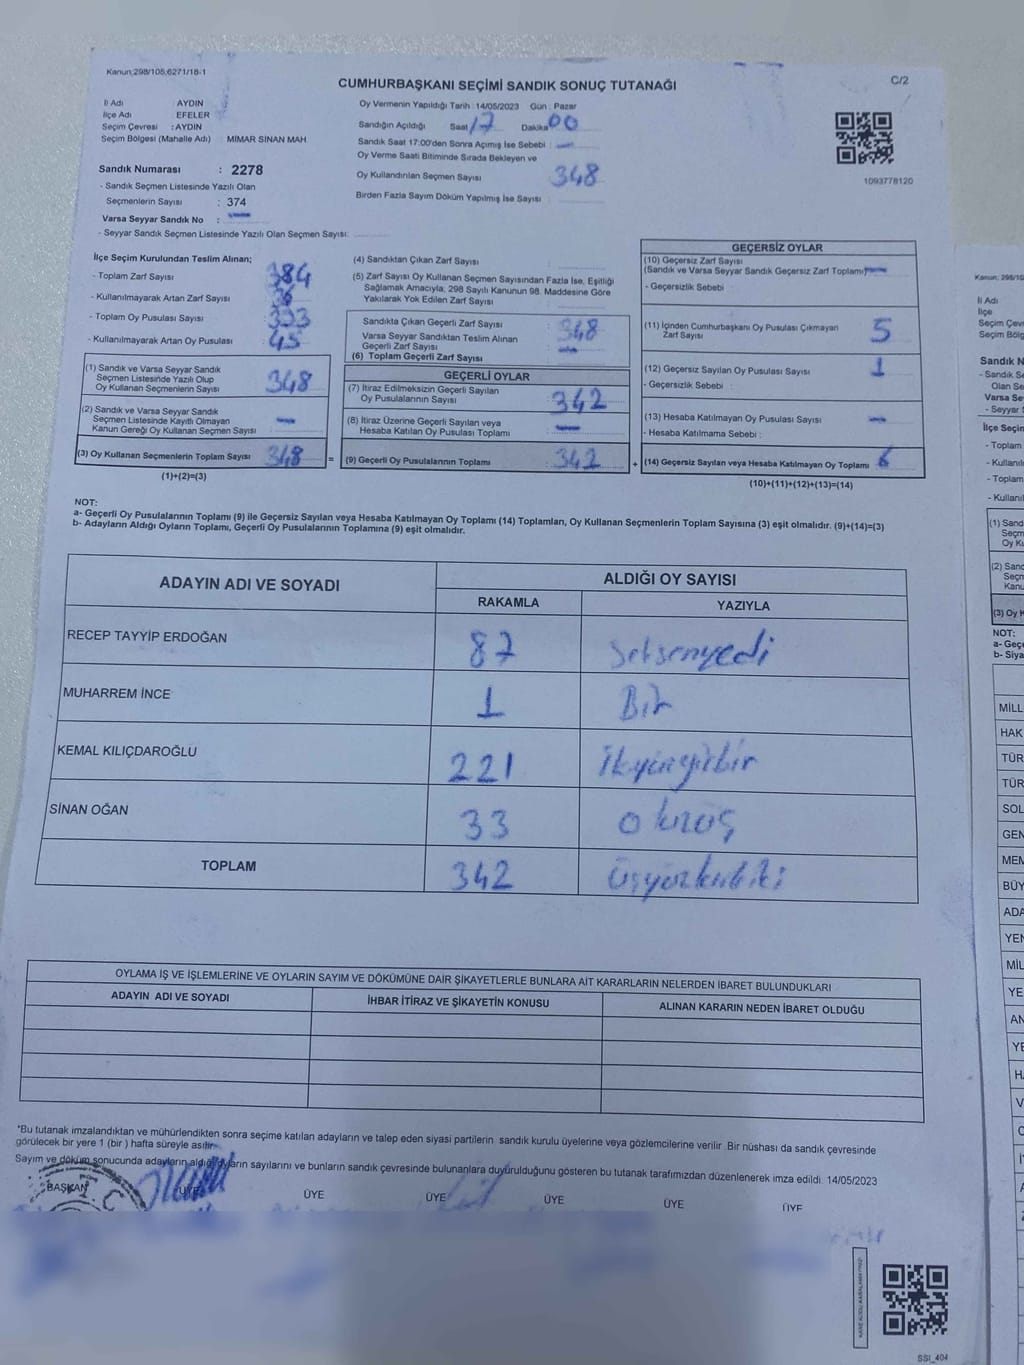 Kanun;298/105,6271/18-1
CUMHURBAŞKANI SEÇİMİ SANDIK SONUÇ TUTANAĞI
C/2
İl Adı : AYDIN
İlçe Adı : EFELER
Seçim Çevresi : AYDIN
Seçim Bölgesi (Mahalle Adı) : MİMAR SİNAN MAH
Sandık Numarası : 2278
- Sandık Seçmen Listesinde Yazılı Olan
Seçmenlerin Sayısı : 374
Varsa Seyyar Sandık No :
- Seyyar Sandık Seçmen Listesinde Yazılı Olan Seçmen Sayısı:
Oy Vermenin Yapıldığı Tarih : 14/05/2023 Gün : Pazar
Sandığın Açıldığı Saat 17 Dakika 00
Sandık Saat 17:00'den Sonra Açımış İse Sebebi :
Oy Verme Saati Bitiminde Sırada Bekleyen ve
Oy Kullandırılan Seçmen Sayısı 348
Birden Fazla Sayım Döküm Yapılmış İse Sayısı :
1093778120
İlçe Seçim Kurulundan Teslim Alınan;
- Toplam Zarf Sayısı : 384
- Kullanılmayarak Artan Zarf Sayısı : 36
- Toplam Oy Pusulası Sayısı :
- Kullanılmayarak Artan Oy Pusulası : 45
(1) Sandık ve Varsa Seyyar Sandık
Seçmen Listesinde Yazılı Olup
Oy Kullanan Seçmenlerin Sayısı : 348
(2) Sandık ve Varsa Seyyar Sandık
Seçmen Listesinde Kayıtlı Olmayan
Kanun Gereği Oy Kullanan Seçmen Sayısı :
(3) Oy Kullanan Seçmenlerin Toplam Sayısı : 348
(1)+(2)=(3)
(4) Sandıktan Çıkan Zarf Sayısı :
(5) Zarf Sayısı Oy Kullanan Seçmen Sayısından Fazla İse, Eşitliği
Sağlamak Amacıyla; 298 Sayılı Kanunun 98. Maddesine Göre
Yakılarak Yok Edilen Zarf Sayısı :
Sandıkta Çıkan Geçerli Zarf Sayısı : 348
Varsa Seyyar Sandıktan Teslim Alınan
Geçerli Zarf Sayısı :
(6) Toplam Geçerli Zarf Sayısı
GEÇERLİ OYLAR
(7) İtiraz Edilmeksizin Geçerli Sayılan
Oy Pusulalarının Sayısı : 342
(8) İtiraz Üzerine Geçerli Sayılan veya
Hesaba Katılan Oy Pusulası Toplamı :
= (9) Geçerli Oy Pusulalarının Toplamı : 342 +
GEÇERSİZ OYLAR
(10) Geçersiz Zarf Sayısı
(Sandık ve Varsa Seyyar Sandık Geçersiz Zarf Toplamı)
- Geçersizlik Sebebi :
(11) İçinden Cumhurbaşkanı Oy Pusulası Çıkmayan
Zarf Sayısı : 5
(12) Geçersiz Sayılan Oy Pusulası Sayısı : 1
- Geçersizlik Sebebi :
(13) Hesaba Katılmayan Oy Pusulası Sayısı :
- Hesaba Katılmama Sebebi :
(14) Geçersiz Sayılan veya Hesaba Katılmayan Oy Toplamı : 6
(10)+(11)+(12)+(13)=(14)
NOT:
a- Geçerli Oy Pusulalarının Toplamı (9) ile Geçersiz Sayılan veya Hesaba Katılmayan Oy Toplamı (14) Toplamları, Oy Kullanan Seçmenlerin Toplam Sayısına (3) eşit olmalıdır. (9)+(14)=(3)
b- Adayların Aldığı Oyların Toplamı, Geçerli Oy Pusulalarının Toplamına (9) eşit olmalıdır.
ADAYIN ADI VE SOYADI
ALDIĞI OY SAYISI
RAKAMLA YAZIYLA
RECEP TAYYİP ERDOĞAN 87 Seksenyedi
MUHARREM İNCE 1 Bir
KEMAL KILIÇDAROĞLU 221
SİNAN OĞAN 33
TOPLAM 342
OYLAMA İŞ VE İŞLEMLERİNE VE OYLARIN SAYIM VE DÖKÜMÜNE DAİR ŞİKAYETLERLE BUNLARA AİT KARARLARIN NELERDEN İBARET BULUNDUKLARI
ADAYIN ADI VE SOYADI
İHBAR İTİRAZ VE ŞİKAYETİN KONUSU
ALINAN KARARIN NEDEN İBARET OLDUĞU
*Bu tutanak imzalandıktan ve mühürlendikten sonra seçime katılan adayların ve talep eden siyasi partilerin sandık kurulu üyelerine veya gözlemcilerine verilir. Bir nüshası da sandık çevresinde
görülecek bir yere 1 (bir) hafta süreyle asılır.
Sayım ve döküm sonucunda adayların aldığı oyların sayılarını ve bunların sandık çevresinde bulunanlara duyurulduğunu gösteren bu tutanak tarafımızdan düzenlenerek imza edildi. 14/05/2023
BAŞKAN ÜYE ÜYE ÜYE ÜYE ÜYE ÜYE
T.C
SSI_404
Kanun; 298/10
İl Adı
İlçe
Seçim Çevr
Seçim Bölg
Sandık N
- Sandık Se
Olan Se
Varsa Se
- Seyyar S
İlçe Seçin
- Toplam
- Kullanıl
- Toplam
- Kullanıl
(1) Sand
Seçm
Oy Ku
(2) Sand
Seçn
Kanu
(3) Oy K
NOT:
a- Geçe
b- Siya
MİLL
HAK
TÜR
TÜR
SOL
GEN
MEM
BÜY
ADA
YEN
MİL
YE
AN
YE